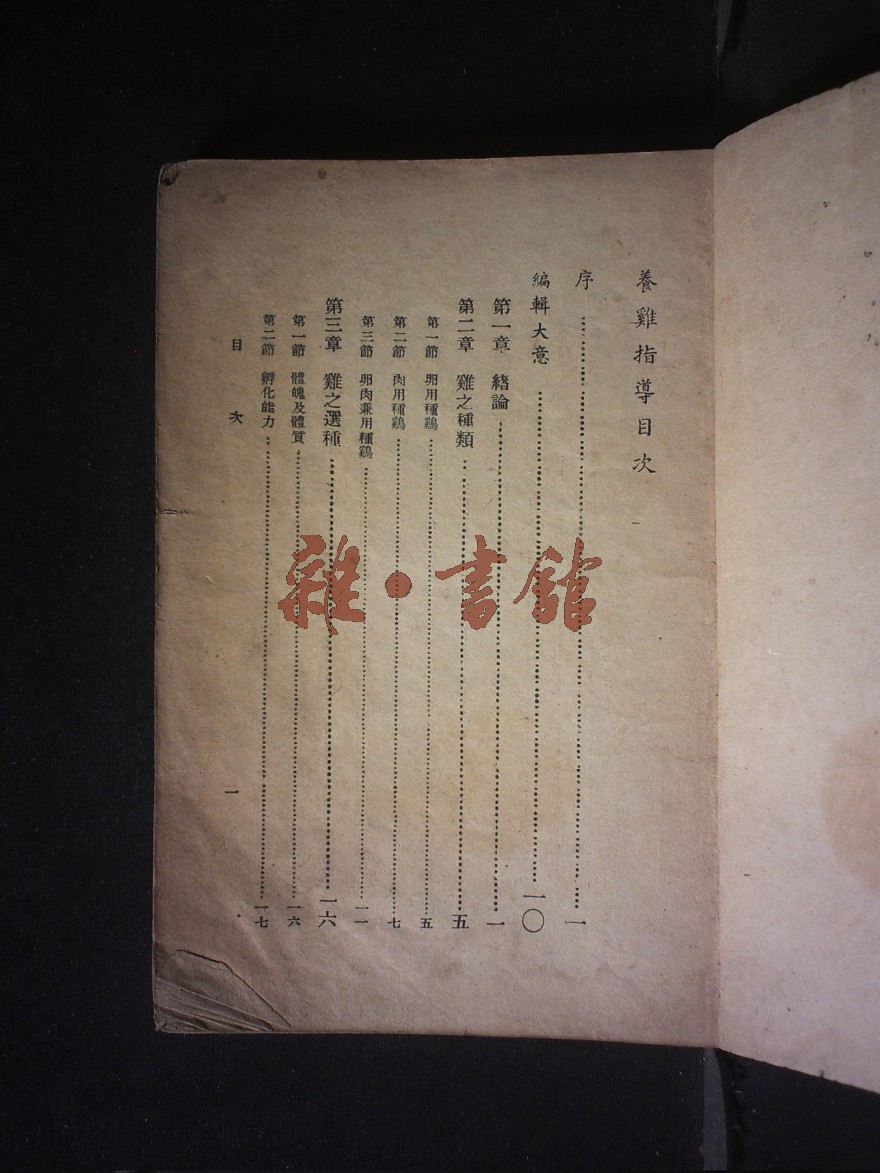 養雞指導目次
序……一
編輯大意……一〇
第一章 緒論……一
第二章 雞之種類……五
第一節 卵用種鷄……五
第二節 肉用種鷄……七
第三節 卵肉兼用種鷄……一一
第三章 雞之選種……一六
第一節 體魄及體質……一六
第二節 孵化能力……一七
目次
一
雜·書館